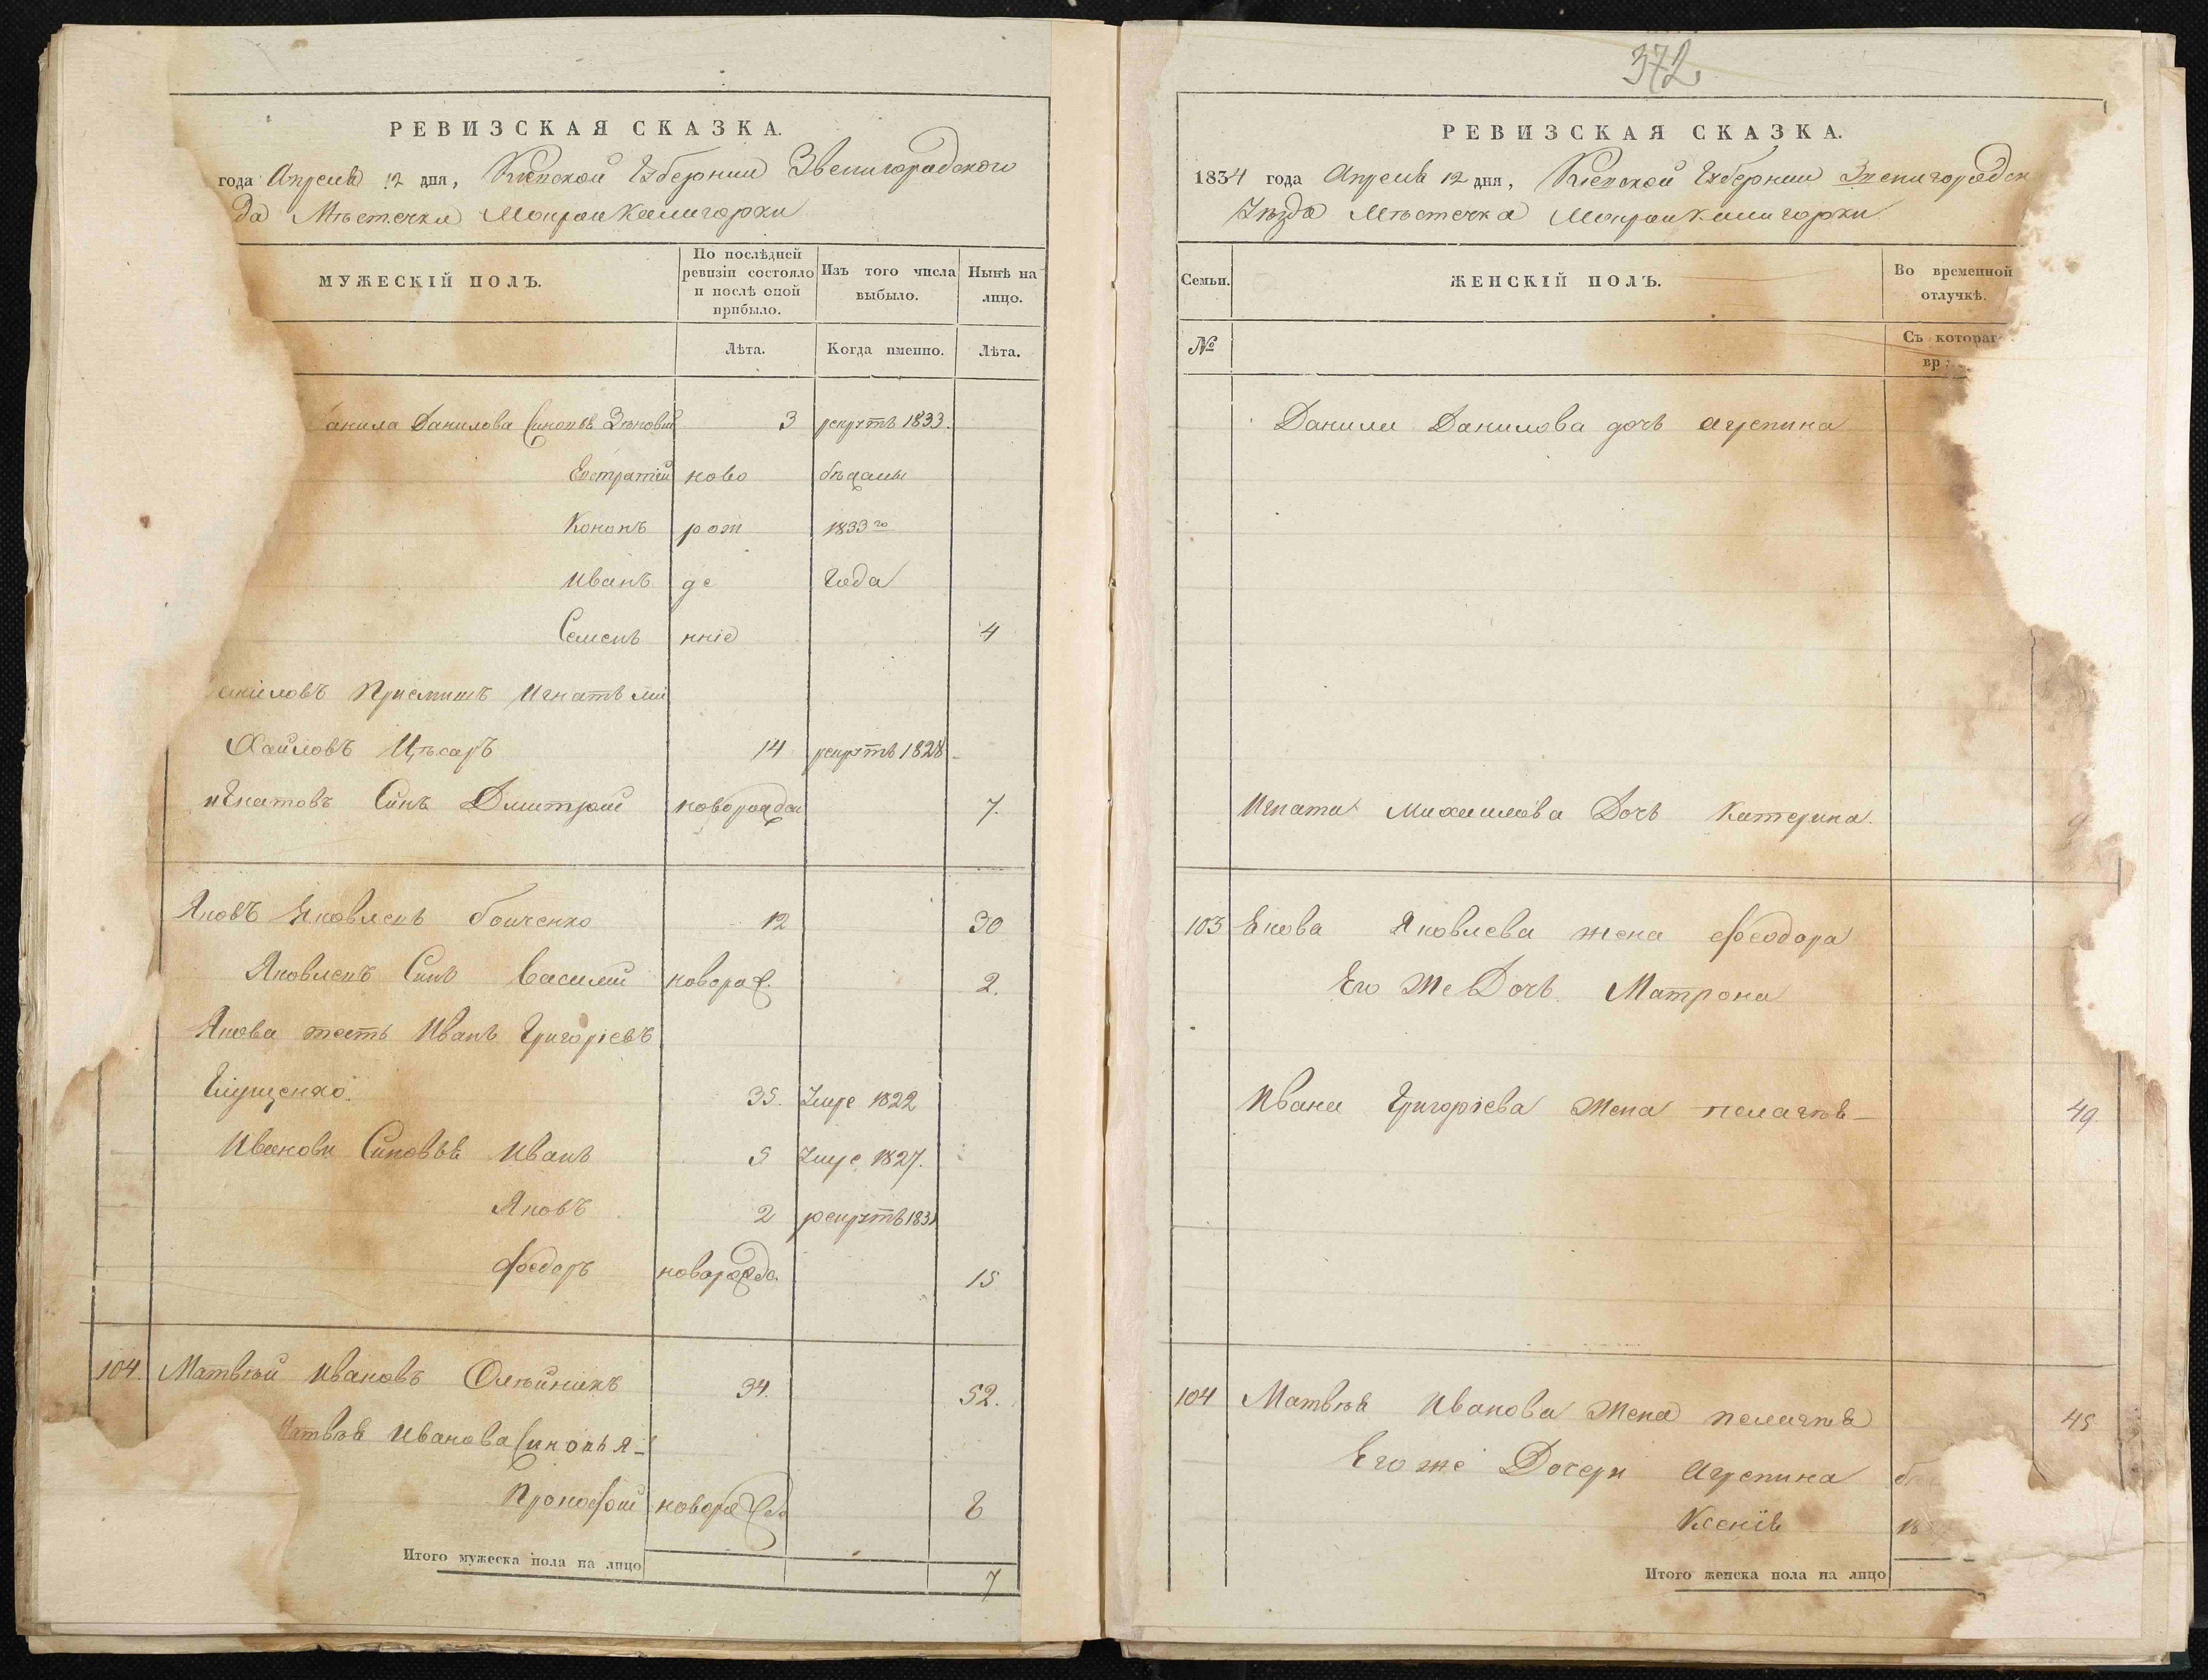 РЕВИЗСКАЯ СКАЗКА.
года Апреля 12 дня, Кіевской Губерніи Звенигородского
да Мѣстечка Мокрои Калигорки
МУЖЕСКІЙ ПОЛЪ.
По послѣдней ревизіи состояло и послѣ оной прибыло.
Изъ того числа выбыло.
Нынѣ на лицо.
Лѣта.
Когда именно.
Лѣта.
анила Данилова Синовья Зѣновій 3 рекрутъ 1833.
Евстратій ново бѣдамы
Кононъ рож 1833го
Иванъ де Года
Семенъ нніе 4
Приемишъ Игнатъ Ми
хайловъ Цѣсарь 14 рекрутъ 1828
Игнатовъ Синъ Дмитрий новорожден 7.
Яковъ Яковлевъ Бойченко 12 30
Яковлевъ Синъ Василий новорож. 2.
Якова тесть Иванъ Григоріевъ
Глущенко. 35. Умре 1822
Ивановы Синовья Иванъ 5 Умре 1827.
Яковъ 2 рекрутъ 1831
Федоръ новорожде. 15
104. Матвѣй Ивановъ Олѣйникъ 34. 52.
Матвѣя Иванова Синовья
Прокофий новорожде 8
Итого мужеска пола на лицо 7
372
РЕВИЗСКАЯ СКАЗКА.
1834 года Апреля 12 дня, Кіевской Губерніи Звенигородск
Уѣзда Мѣстечка Мокрои Калигорки
Семьи.
ЖЕНСКІЙ ПОЛЪ.
Во временной отлучкѣ.
№
Съ котораг
вр
Данила Данилова дочь Агрепина
Игната Михаилова Дочь Катерина.
103 Якова Яковлева жена Феодора
Его же Дочь Матрона
Ивана Григоріева Жена Пелагѣя 49
104 Матвѣя Иванова Жена Пелагѣя 45
Его же Дочери Агрепина
Ксенія 18
Итого женска пола на лицо